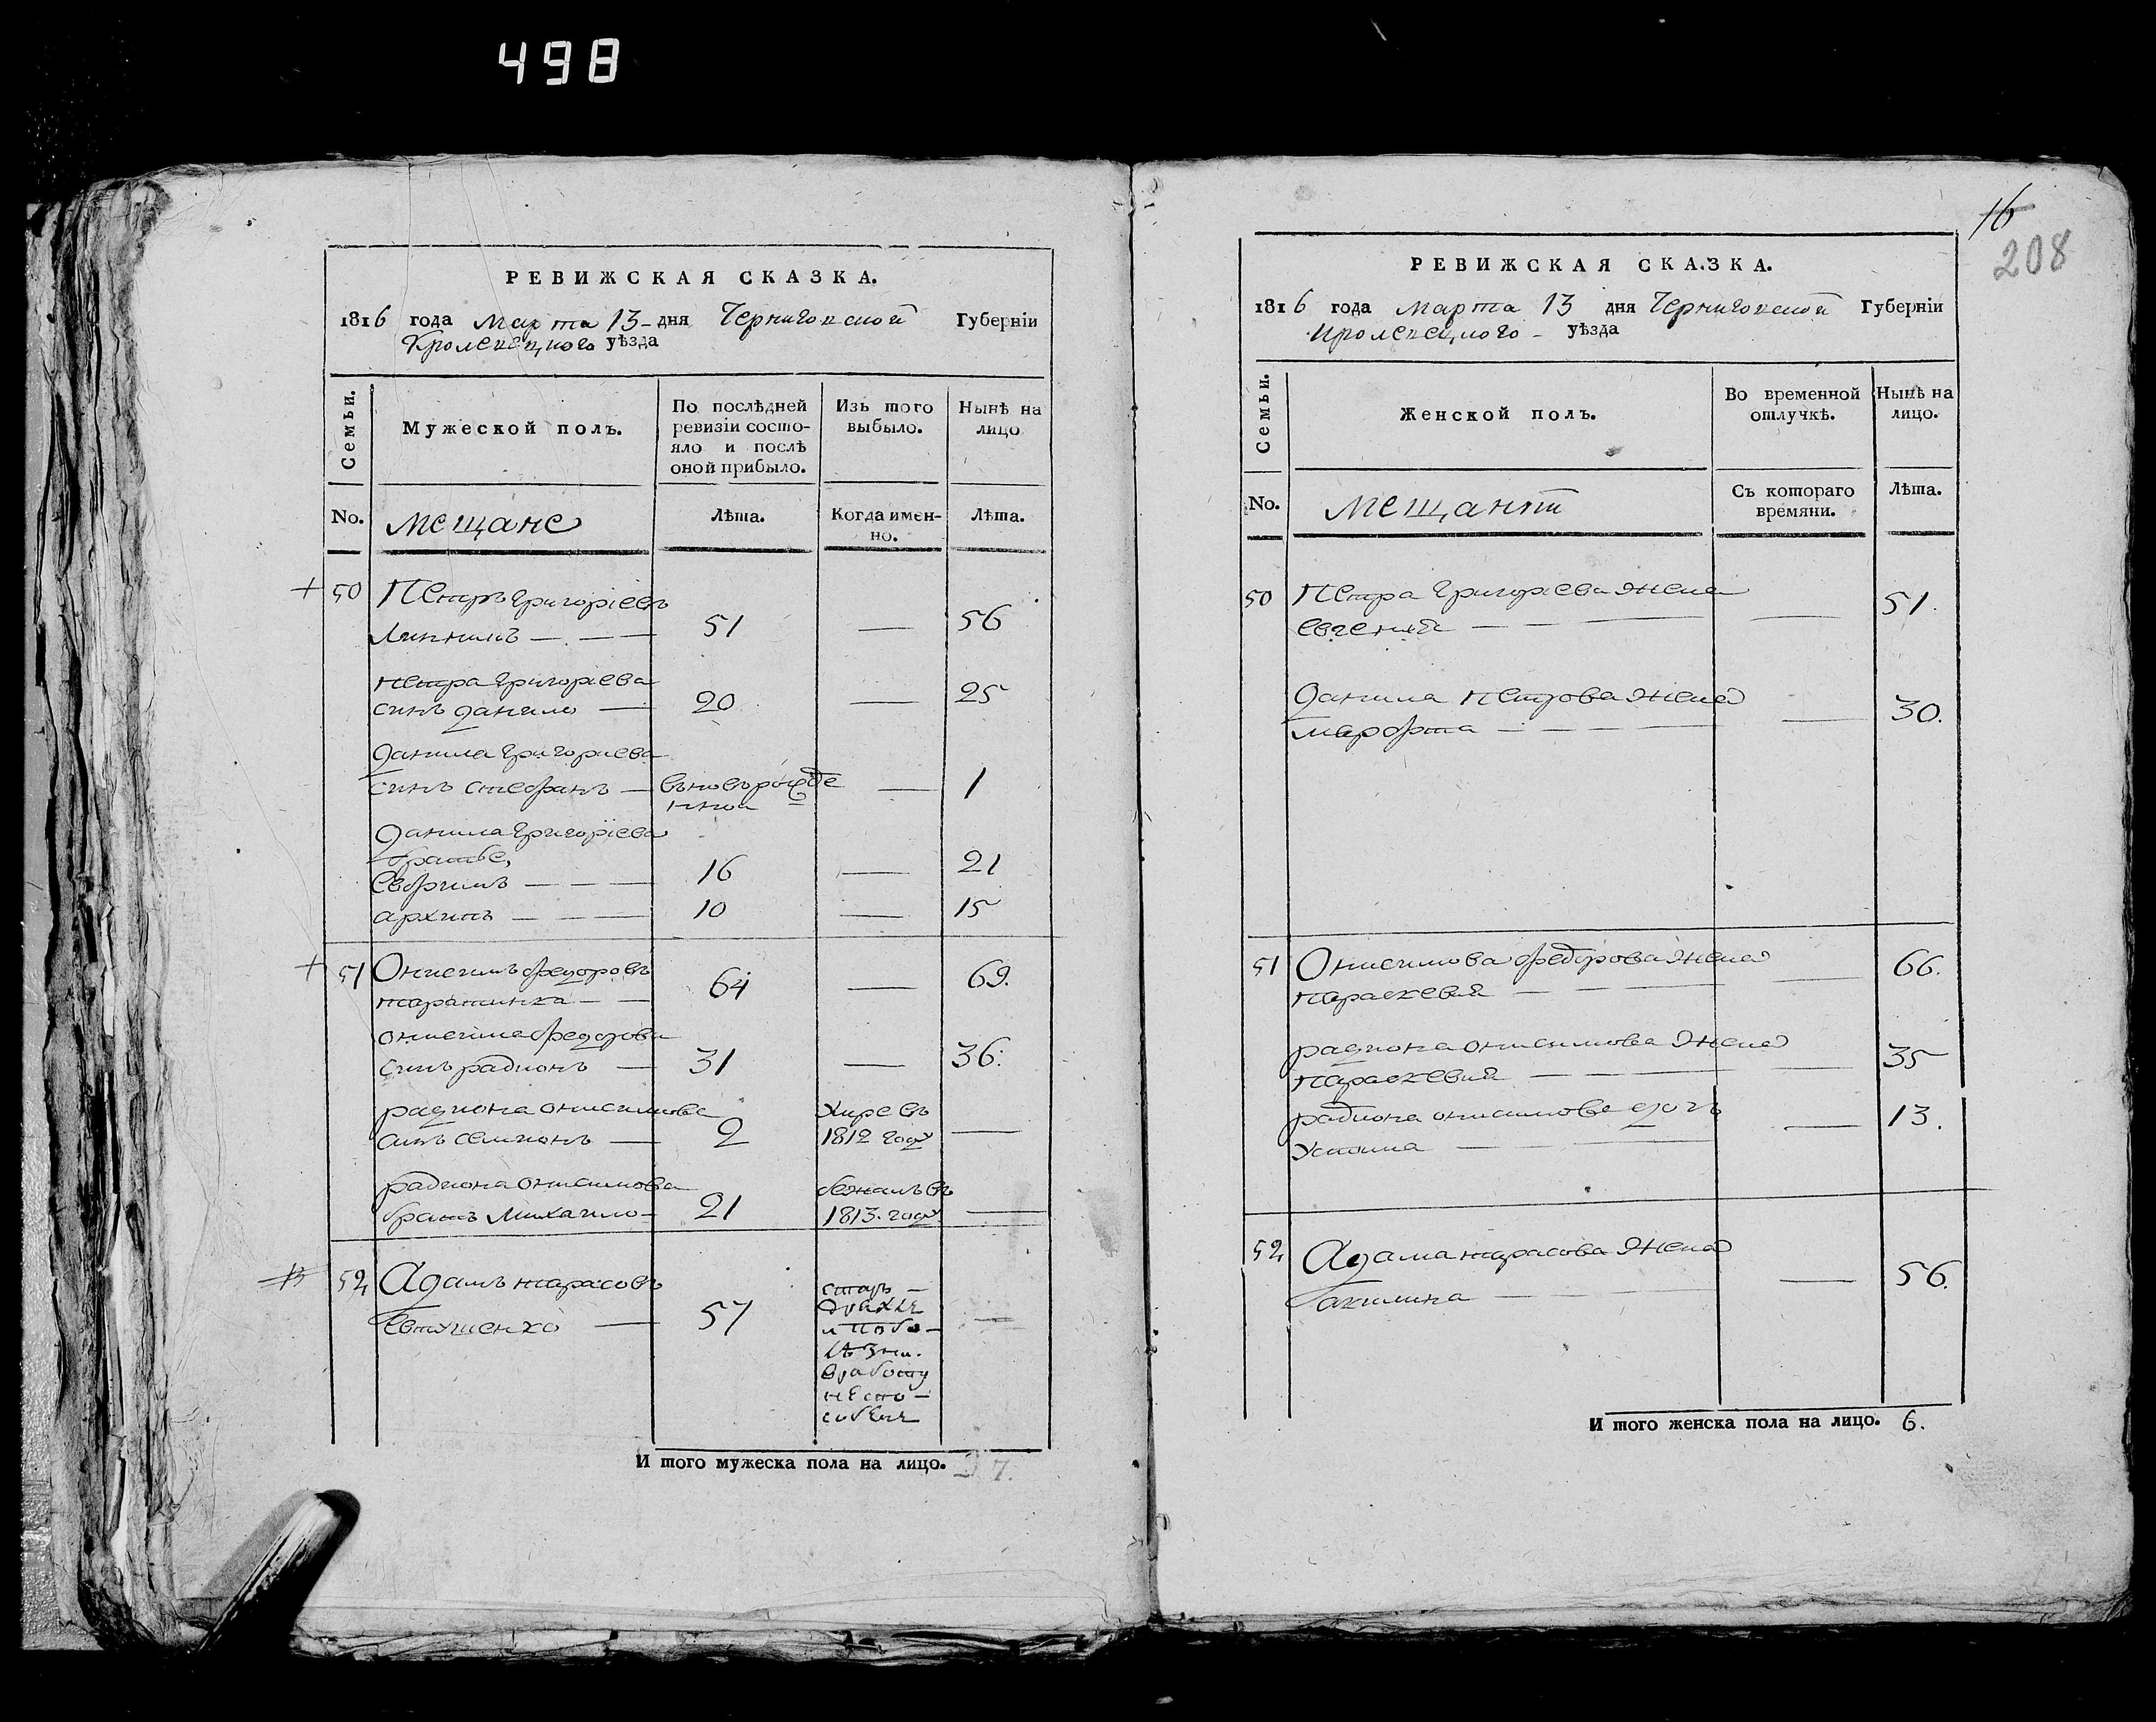 498
РЕВИЖСКАЯ СКАЗКА.
1816 года Марта 13 - дня Черниговской Губерніи
Кролевецкого уѣзда
Семьи.
Мужеской полъ.
По послѣдней
ревизіи состо-
яло и послѣ
оной прибыло.
Изъ того
выбыло.
Нынѣ на
лицо
No.
Мещане
Лѣта.
Когда имен-
но.
Лѣта.
+ 50 Петръ Григоріевъ
51 — 56
петра Григоріева
синъ данило — 20 — 25
данила Григориева
синъ стефанъ — вновърожде — 1
нной
данила Григоріева
братье,
Евфимъ — — — 16 — 21
архипъ — — — 10 — 15
+ 51 Онисимъ федоровъ
64 — 69.
онисима федорова
синъ радионъ — 31 — 36.
радиона онисимова умре въ
синъ семионъ — 2 1812 году —
радиона онисимова бежалъ въ
братъ Михаило — 21 1813. году —
52 Адамъ тарасовъ
Евтушенко — 57 —
старъ —
дряхлъ
и по бо-
лѣзни.
вработу
неспо-
собенъ
И того мужеска пола на лицо. 7.
16
208
РЕВИЖСКАЯ СКАЗКА.
1816 года Марта 13 дня Черниговской Губерніи
кролевецкого - уѣзда
Семьи.
Женской полъ.
Во временной
отлучкѣ.
Нынѣ на
лицо.
No.
Мещанки
Съ котораго
времяни.
Лѣта.
50 Петра Григориева жена
евгения — — — — 51.
данила Петрова жена
марфта — — — — 30.
51 Онисимова федорова жена
параскевия — — — — 66.
радиона онисимова жена
параскевия — — — — 35
радиона онисимова дочъ
Устина — — — 13.
52 Адама тарасова жена
акилина — — 56.
И того женска пола на лицо. 6.